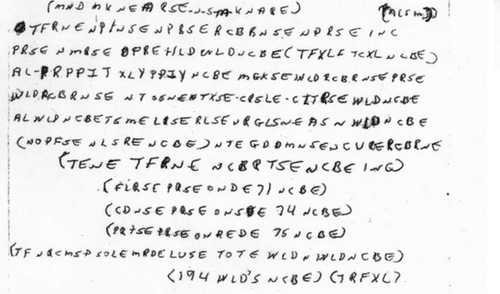 (MND MKNEARSE-N-S-M-KNARE) (ACSM)
TFRNE NPTNSENPBSERCBBRNSENPRSE INC
PRSE NMRSE OPREHLD WLD NCBE (TFXLF TCXL NCBE)
AL-PRPPIT XLYPPIY NCBE MGKSE WLDRCBRNSE PRSE
WLDRCBRNSE NTSSNENTXSE-CRSLE-CITRSE WLD NCBE
ALWLD NCBE TSMELRSERLSEURGLSNEASN WLD NCBE
(NOPFSE NLSRE NCBE) NTEGDDMNSENCURERCBRNE
(TENE TFRNE NCBRTSENCBE ING)
(FLRSE PRSE ONDE 71 NCBE)
(CDNSE PRSE ONSDE 74 NCBE)
(PRTSE PRSE ONREDE 75 NCBE)
(TFNRCMSP SOLEMRDELUSE TOTE WLD N WLD NCBE)
(194 WLD'S NCBE) (TRFXL)